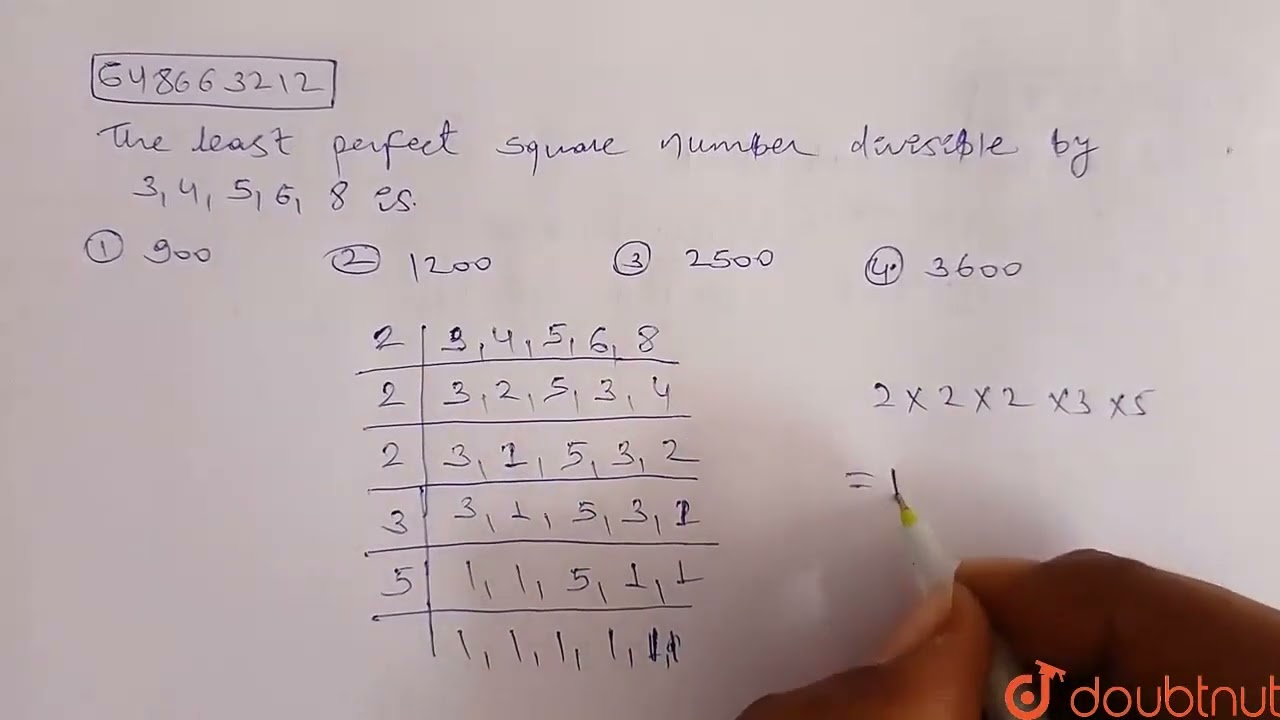 648663212
The least perfect square number divisible by
3, 4, 5, 6, 8 is.
① 900 ② 1200 ③ 2500 ④ 3600
2 | 3, 4, 5, 6, 8
2 | 3, 2, 5, 3, 4
2 | 3, 1, 5, 3, 2
3 | 3, 1, 5, 3, 1
5 | 1, 1, 5, 1, 1
1, 1, 1, 1, 1
2 × 2 × 2 × 3 × 5
= 1
doubtnut